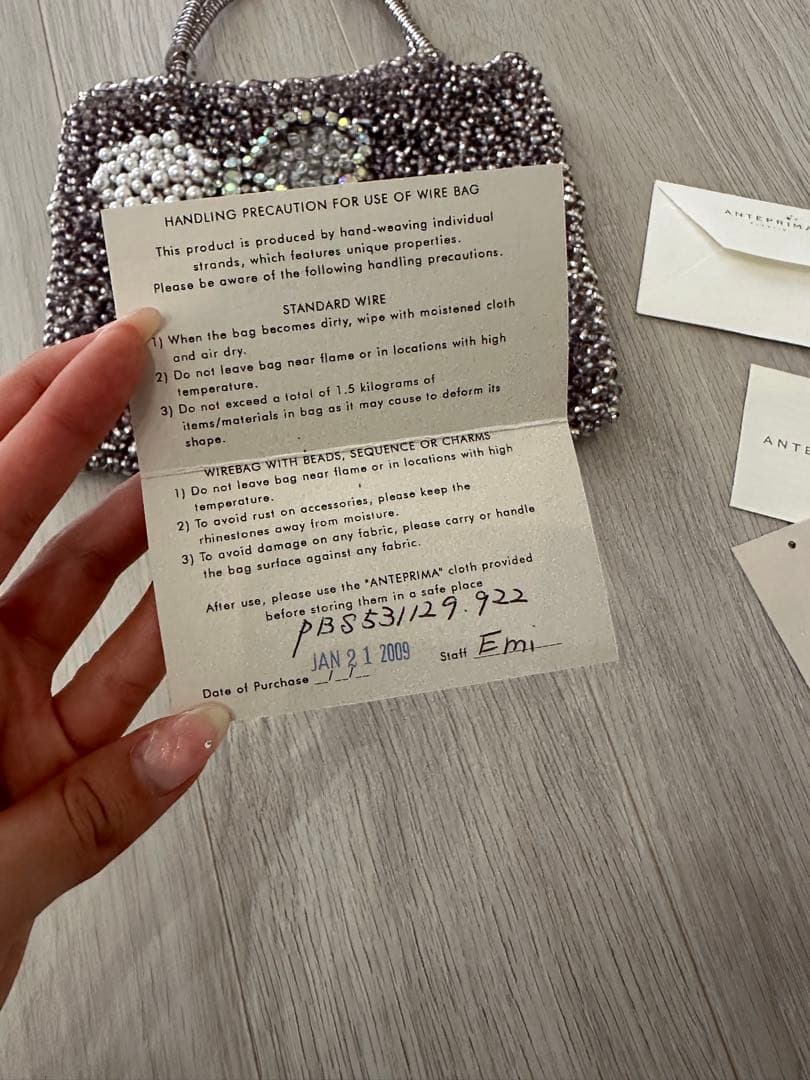 HANDLING PRECAUTION FOR USE OF WIRE BAG
This product is produced by hand-weaving individual
strands, which features unique properties.
Please be aware of the following handling precautions.
STANDARD WIRE
1) When the bag becomes dirty, wipe with moistened cloth
and air dry.
2) Do not leave bag near flame or in locations with high
temperature.
3) Do not exceed a total of 1.5 kilograms of
items/materials in bag as it may cause to deform its
shape.
WIREBAG WITH BEADS, SEQUENCE OR CHARMS
1) Do not leave bag near flame or in locations with high
temperature.
2) To avoid rust on accessories, please keep the
rhinestones away from moisture.
3) To avoid damage on any fabric, please carry or handle
the bag surface against any fabric.
After use, please use the "ANTEPRIMA" cloth provided
before storing them in a safe place
PBS531129.922
JAN 21 2009
Staff Emi
Date of Purchase _/_/_
ANTEPRIMA
ANTE